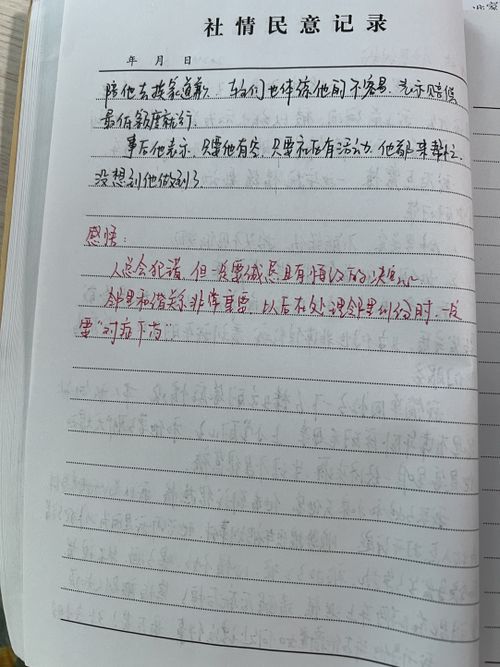 社情民意记录
年 月 日
陪他去挨家道歉 车主们也体谅他的不容易 表示赔偿
最低额度就行.
事后他表示,只要他有空,只要社区有活动,他都来帮忙,
没想到他做到了
感悟:
人总会犯错,但一定要诚恳且有悔改的决心
邻里和谐关系非常重要,以后在处理邻里纠纷时,一定
要“对症下药”